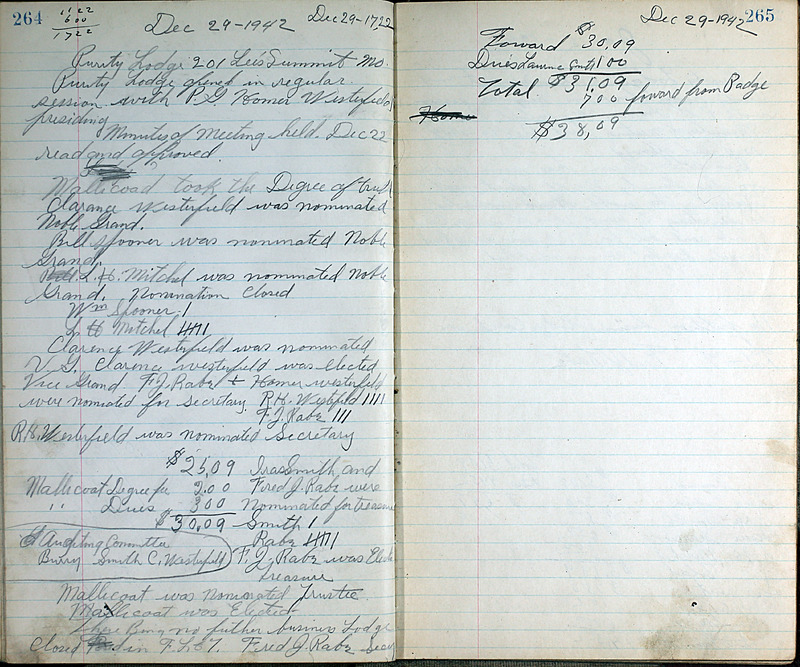 264
1122
600
1722
Dec 29-1942
Dec 29-1722
Purity Lodge 201 Lee's Summit Mo.
Purity Lodge opened in regular
session with P.G Homer Westerfield
presiding
Minuty of Meeting held. Dec 22
read and approved.
Mallicoad took the Degree of
Clarance Westerfield was nominated
Noble Grand.
Bill Spooner was nominated Noble
Grand.
L.H. Mitchel was nominated Noble
Grand. Nomination Closed
Wm Spooner 1
L H Mitchel
Clarence Westerfield was nominated
V G, Clarence Westerfield was elected
Vice Grand F.J. Rabe + Homer Westerfield
were nomiated for secretary. R.H. Westerfield 1111
F.J. Rabe 111
R.H. Westerfield was nominated Secretary
$25,09 Ira Smith and
Mallicoat Degree fee 2.00 Fred J. Rabe were
" Dues 300 Nominated for treasure
$30.09 Smith 1
Auditing Committee Rabe
Burry Smith C. Westerfield F. J. Rabe was Elected
treasure
Mallicoat was Nominated Trustee.
Mallicoat was Elected
There Being no further business Lodge
Closed in F. L & T. Fred J. Rabe Secy
Dec 29-1942
265
Foward $30.09
Dues Laurence Smith 100
Total $31.09
700 foward from Badge
$38,09